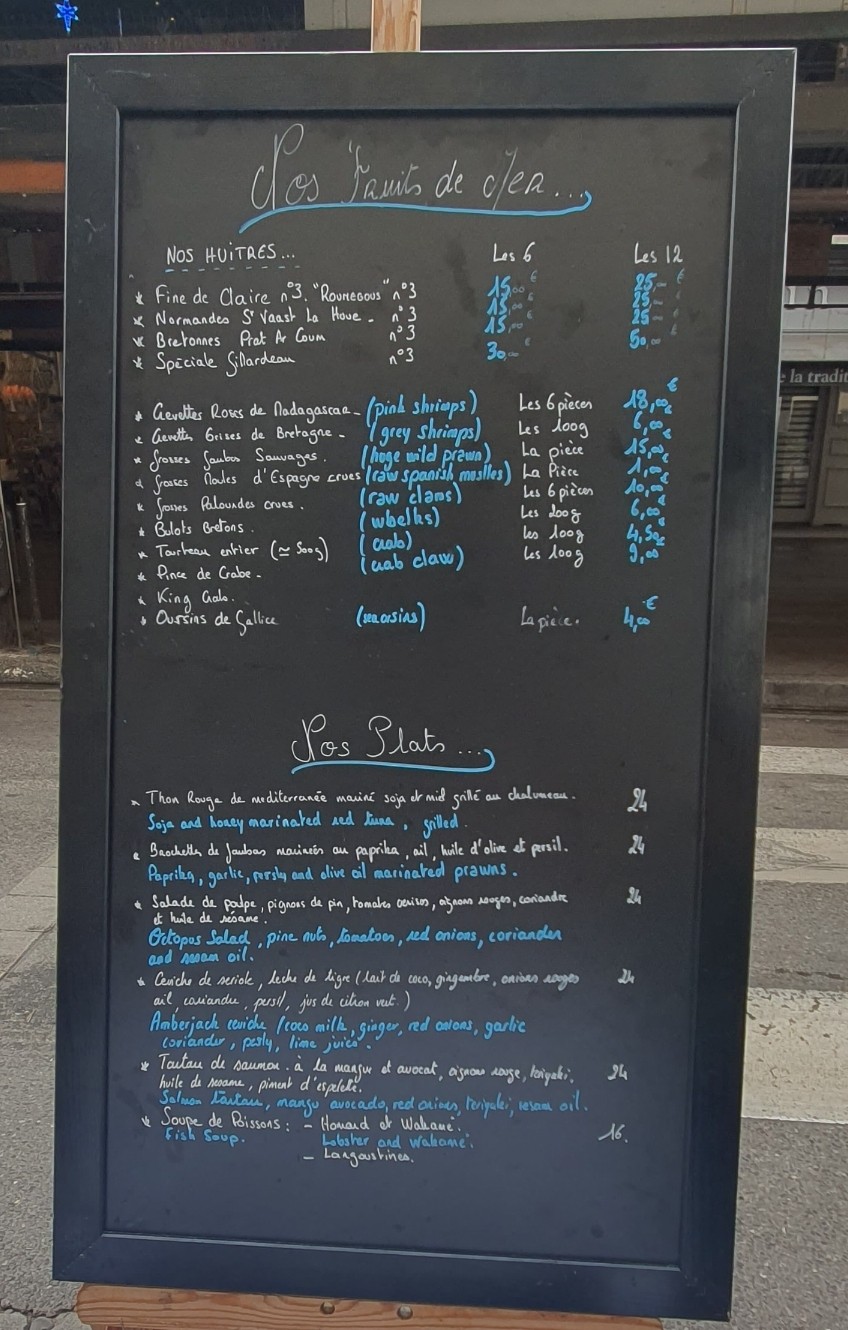 Nos Fruits de Mer...
NOS HUiTRES... Les 6 Les 12
* Fine de Claire n°3. "Roumegous" n°3 15,00 € 25 - €
* Normandes St Vaast La Houe - n°3 15,00 € 25 - €
* Bretonnes Prat Ar Coum n°3 15,00 € 25 - €
* Spéciale Gillardeau n°3 30,00 € 50,00 €
* Crevettes Roses de Madagascar - (pink shrimps) Les 6 pièces 18,00 €
* Crevettes Grises de Bretagne - (grey shrimps) Les 100g 6,00 €
* Grosses Gambas Sauvages. (huge wild prawn) La pièce 15,00 €
* Grosses Moules d'Espagne crues (raw spanish muslles) La Pièce 1,00 €
* Grosses Palourdes crues. (raw clams) Les 6 pièces 10,00 €
* Bulots Bretons. (whelks) Les 200g 6,00 €
* Tourteau entier (≃ 500g) (crab) les 100g 4,50 €
* Pince de Crabe. (crab claw) Les 100g 9,00 €
* King Crab.
* Oursins de Gallice (sea orsins) La pièce. 4,00 €
Nos Plats...
* Thon Rouge de mediterranée mariné soja et miel grillé au chalumeau. 24
Soja and honey marinated red tuna, grilled.
* Brochettes de Gambas marinées au paprika, ail, huile d'olive et persil. 24
Paprika, garlic, persly and olive oil marinated prawns.
* Salade de poulpe, pignons de pin, tomates cerises, oignons rouges, coriandre 24
et huile de sésame.
Octopus Salad, pine nuts, tomatoes, red onions, coriander
and sesam oil.
* Ceviche de seriole, leche de tigre (lait de coco, gingembre, onions rouges 24
ail, coriandre, persil, jus de citron vert.)
Amberjack ceviche (coco milk, ginger, red onions, garlic
coriander, persly, lime juice.
* Tartare de saumon. à la mangue et avocat, oignons rouge, teriyaki, 24
huile de sesame, piment d'espelette.
Salmon tartar, mango avocado, red onions, teriyaki, sesam oil.
* Soupe de Poissons: - Homard et Wakamé. 16.
Fish Soup. Lobster and Wakamé.
- Langoustines.